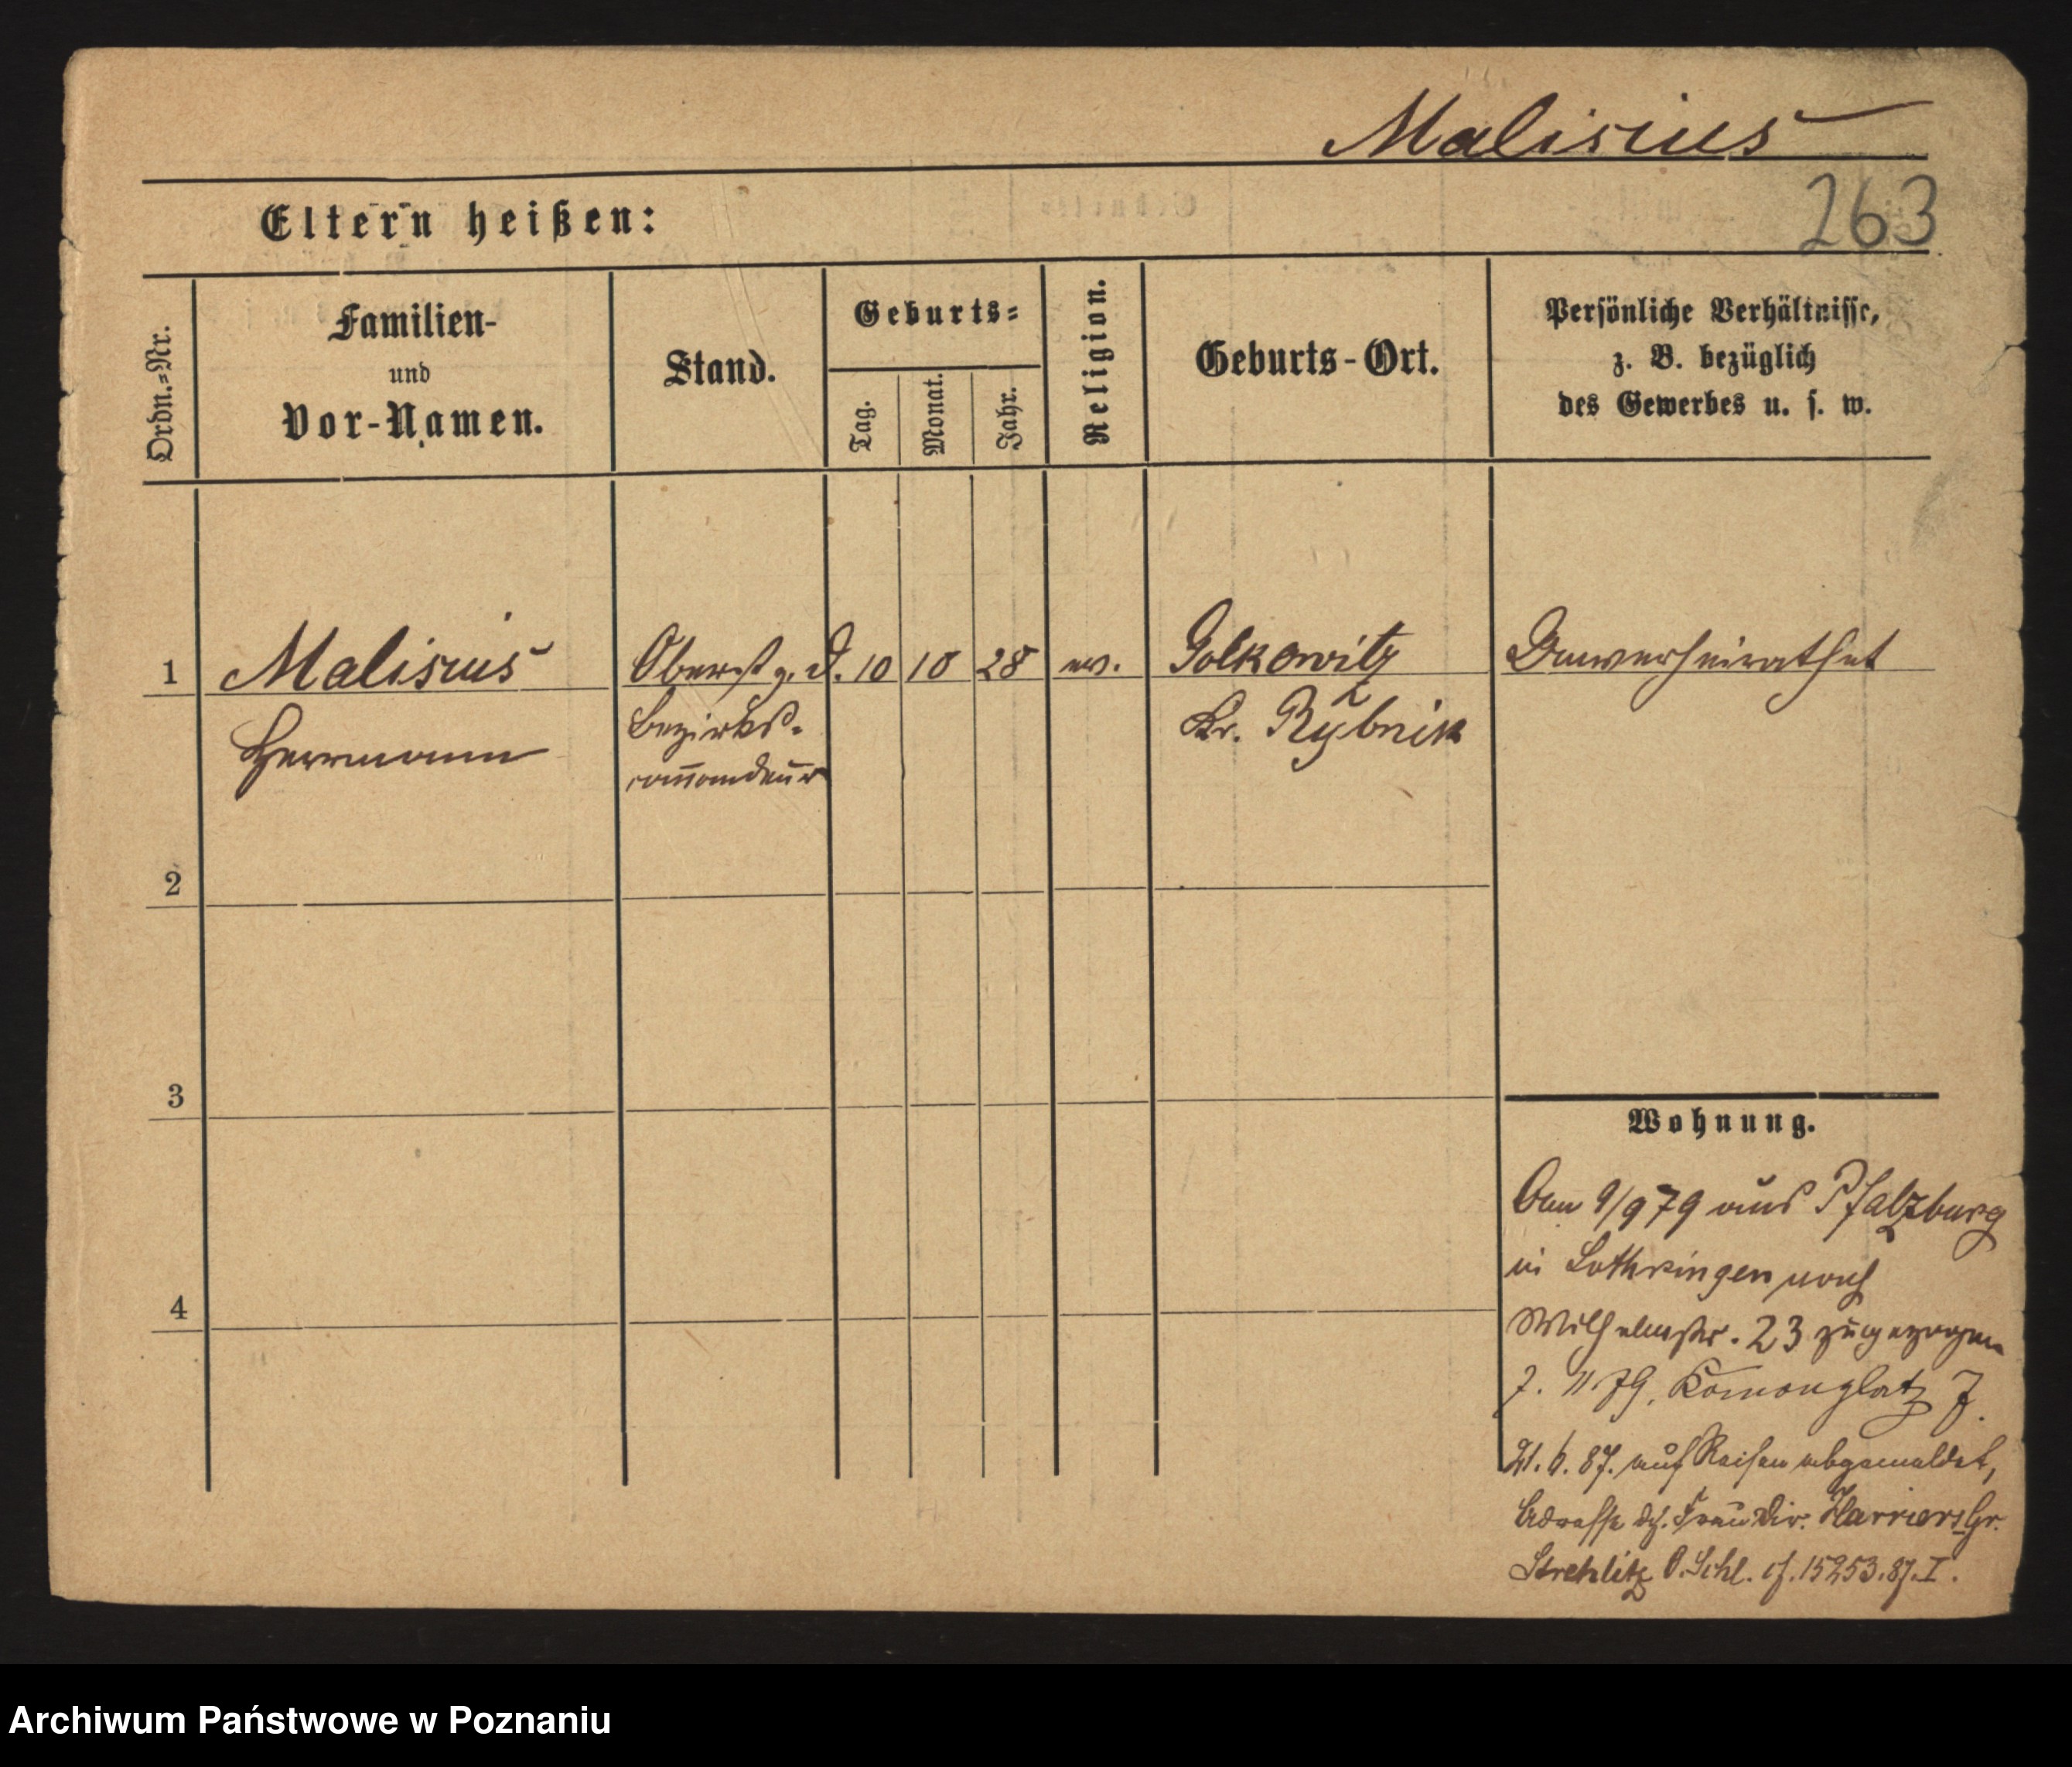 Malisius
263
Eltern heißen:
Ordn.=Nr.
Familien-
und
Vor-Namen.
Stand.
Geburts=
Tag.
Monat.
Jahr.
Religion.
Geburts-Ort.
Persönliche Verhältnisse,
z. B. bezüglich
des Gewerbes u. s. w.
1
Malisius
Herrmann
Oberst z. D.
Bezirks-
commandeur
10
10
28
ev.
Golkowitz
Kr. Rybnik
Unverheirathet
2
3
4
Wohnung.
Am 9/9 79 aus Pfalzburg
in Lothringen nach
Wilhelmstr. 23 zugezogen
7. 11. 79. Kanonenplatz 7.
21. 6. 87. auf Reisen abgemeldet,
Adresse Frau Dir. Gr.
Strehlitz O. Schl. cf. 15253.87.I.
Archiwum Państwowe w Poznaniu